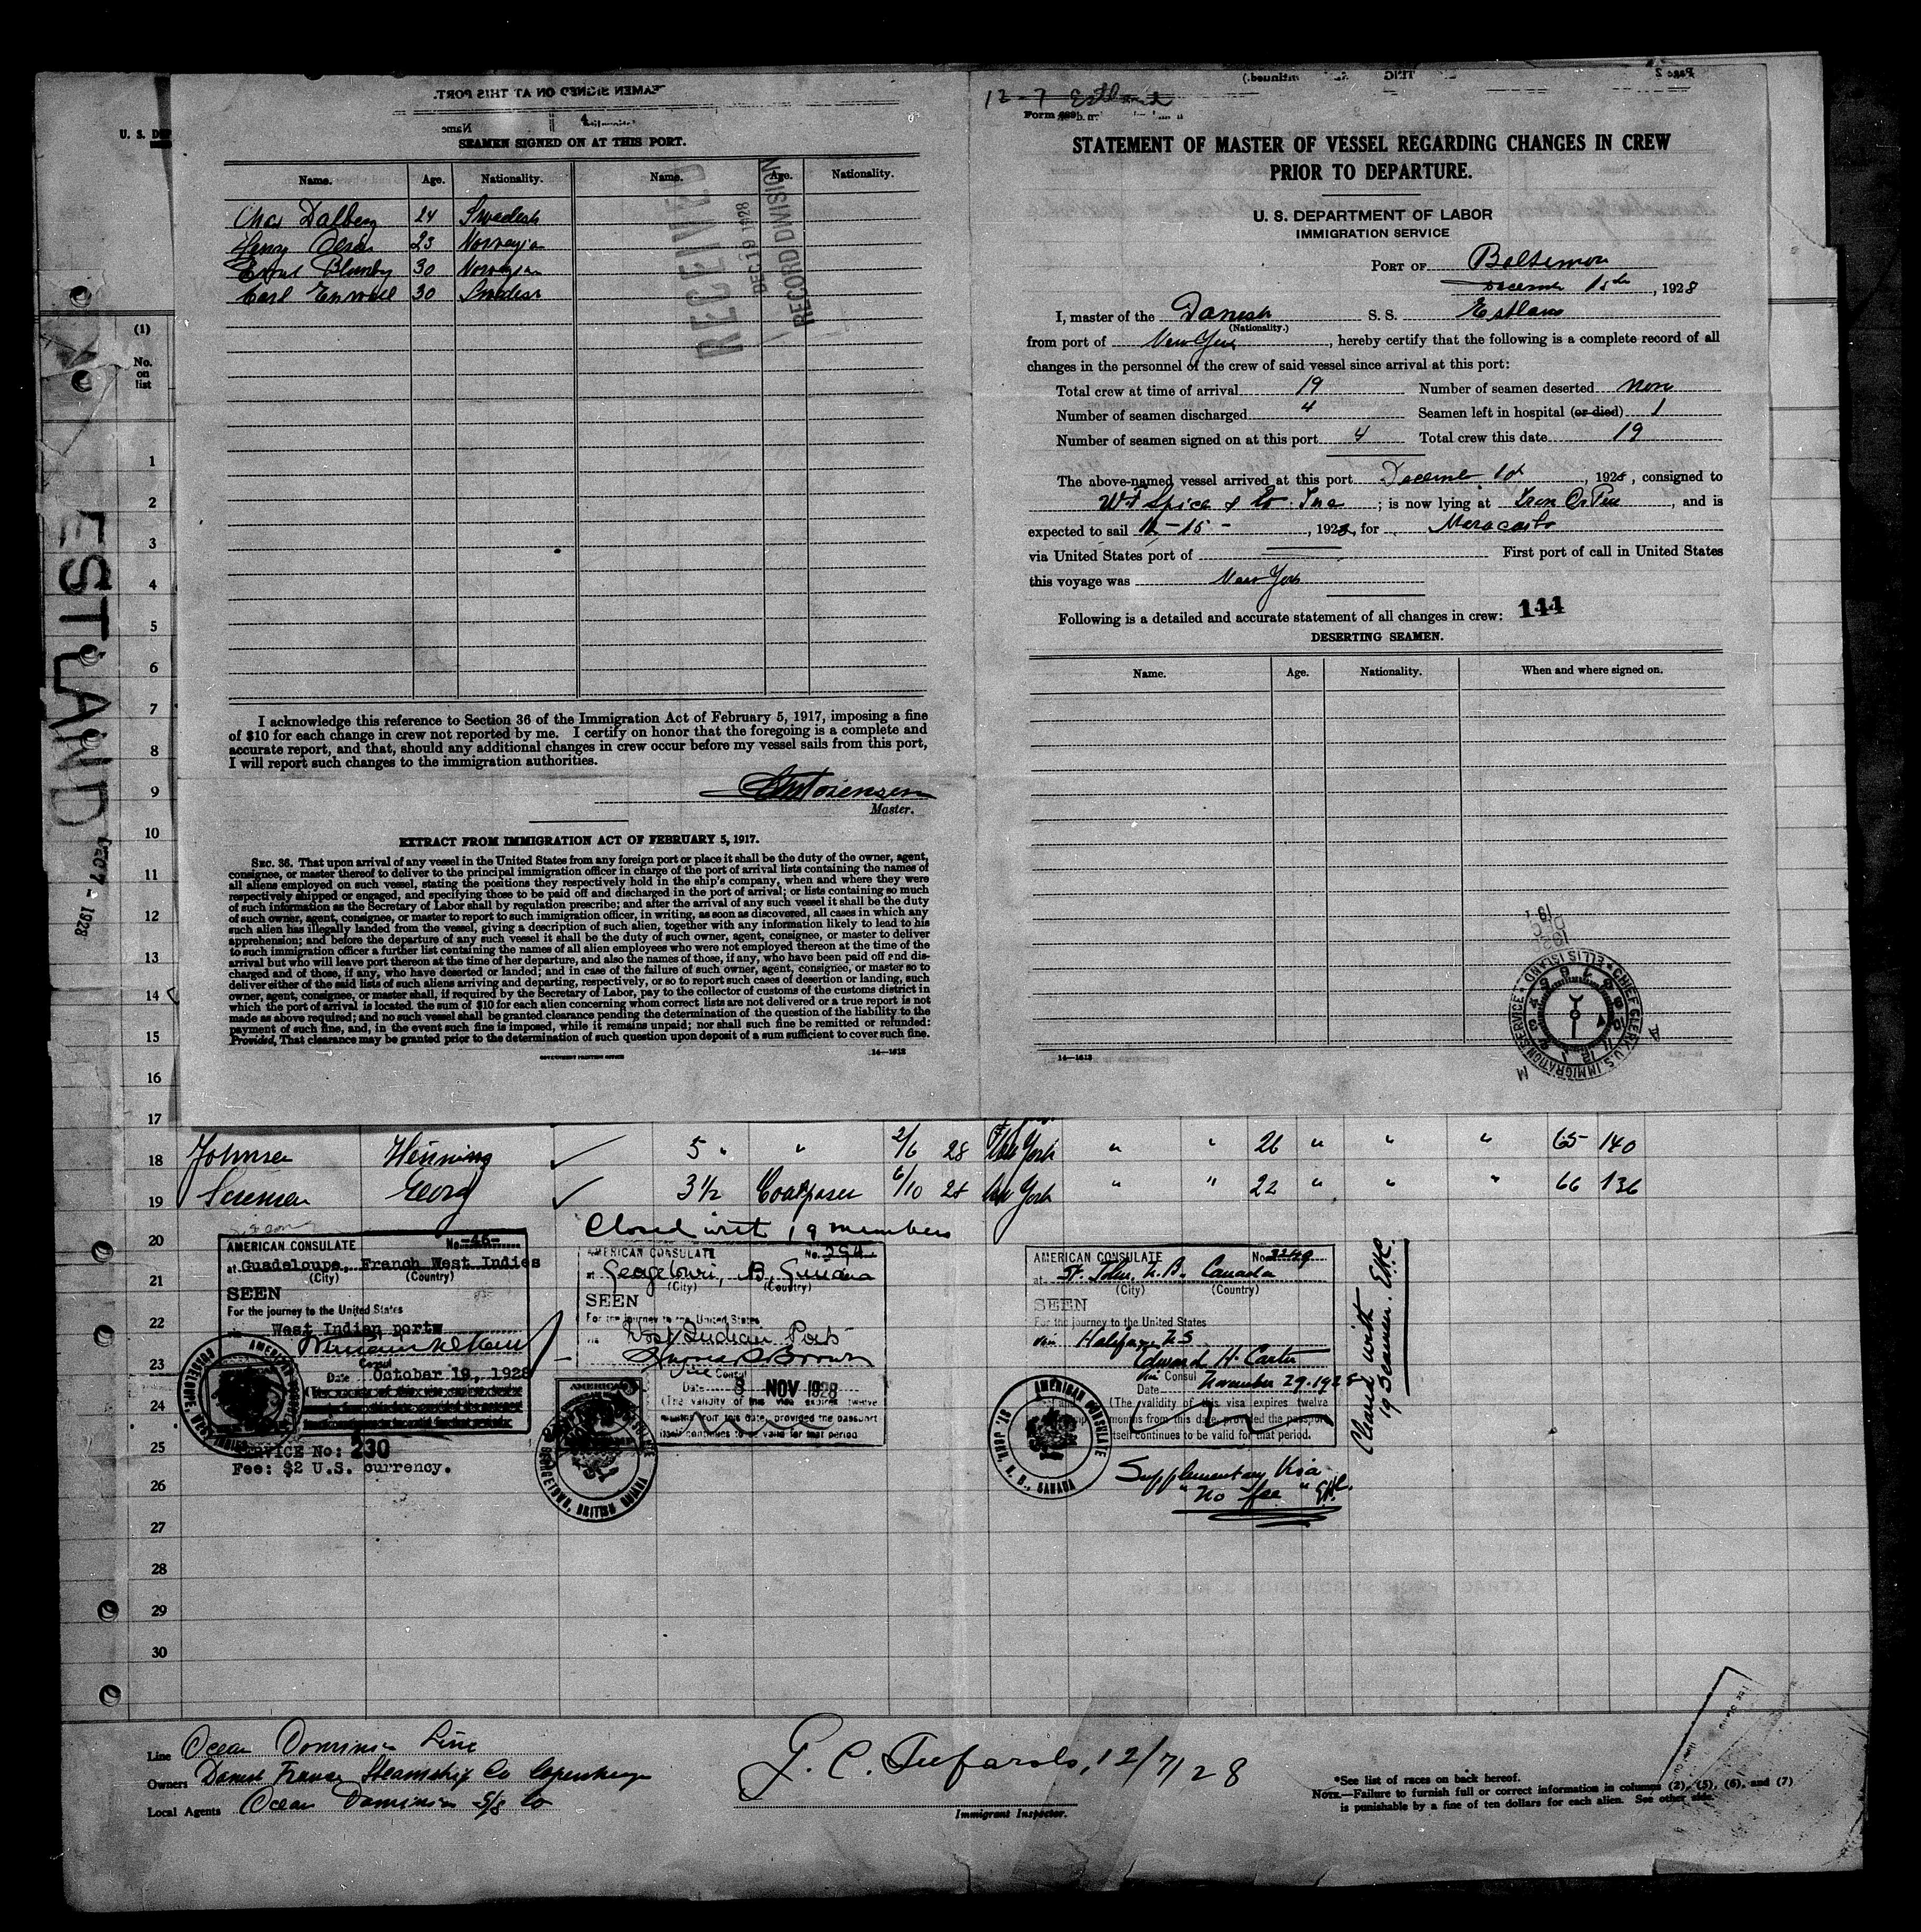 SEAMEN SIGNED ON AT THIS PORT.
Name. Age. Nationality. Name. Age. Nationality.
Chas Dalberg 24 Swedish
Henry Olsen 23 Norwegian
30 Norwegian
Carl 30 Swedish
RECEIVED
DEC 19 1928
RECORD DIVISION
I acknowledge this reference to Section 36 of the Immigration Act of February 5, 1917, imposing a fine
of $10 for each change in crew not reported by me. I certify on honor that the foregoing is a complete and
accurate report, and that, should any additional changes in crew occur before my vessel sails from this port,
I will report such changes to the immigration authorities.
Master.
EXTRACT FROM IMMIGRATION ACT OF FEBRUARY 5, 1917.
SEC. 36. That upon arrival of any vessel in the United States from any foreign port or place it shall be the duty of the owner, agent,
consignee, or master thereof to deliver to the principal immigration officer in charge of the port of arrival lists containing the names of
all aliens employed on such vessel, stating the positions they respectively hold in the ship's company, when and where they were
respectively shipped or engaged, and specifying those to be paid off and discharged in the port of arrival; or lists containing so much
of such information as the Secretary of Labor shall by regulation prescribe; and after the arrival of any such vessel it shall be the duty
of such owner, agent, consignee, or master to report to such immigration officer, in writing, as soon as discovered, all cases in which any
such alien has illegally landed from the vessel, giving a description of such alien, together with any information likely to lead to his
apprehension; and before the departure of any such vessel it shall be the duty of such owner, agent, consignee, or master to deliver
to such immigration officer a further list containing the names of all alien employees who were not employed thereon at the time of the
arrival but who will leave port thereon at the time of her departure, and also the names of those, if any, who have been paid off and dis-
charged and of those, if any, who have deserted or landed; and in case of the failure of such owner, agent, consignee, or master so to
deliver either of the said lists of such aliens arriving and departing, respectively, or so to report such cases of desertion or landing, such
owner, agent, consignee, or master shall, if required by the Secretary of Labor, pay to the collector of customs of the customs district in
which the port of arrival is located the sum of $10 for each alien concerning whom correct lists are not delivered or a true report is not
made as above required; and no such vessel shall be granted clearance pending the determination of the question of the liability to the
payment of such fine, and, in the event such fine is imposed, while it remains unpaid; nor shall such fine be remitted or refunded:
Provided, That clearance may be granted prior to the determination of such question upon deposit of a sum sufficient to cover such fine.
GOVERNMENT PRINTING OFFICE 14—1613
12-7 Estland
Form 689
STATEMENT OF MASTER OF VESSEL REGARDING CHANGES IN CREW
PRIOR TO DEPARTURE.
U. S. DEPARTMENT OF LABOR
IMMIGRATION SERVICE
PORT OF Baltimore
December 15th, 1928
I, master of the Danish S. S. Estland
(Nationality.)
from port of New York, hereby certify that the following is a complete record of all
changes in the personnel of the crew of said vessel since arrival at this port:
Total crew at time of arrival 19 Number of seamen deserted none
Number of seamen discharged 4 Seamen left in hospital (or died) 1
Number of seamen signed on at this port 4 Total crew this date 19
The above-named vessel arrived at this port December, 1928, consigned to
W F Spice & Co Inc; is now lying at, and is
expected to sail 12-15-, 1928, for Maracaibo
via United States port of First port of call in United States
this voyage was New York
Following is a detailed and accurate statement of all changes in crew: 144
DESERTING SEAMEN.
Name. Age. Nationality. When and where signed on.
14—1613
CHIEF CLERK, U.S. IMMIGRATION SERVICE ELLIS ISLAND
U. S.
(1)
No.
on
list
ESTLAND
DEC 7 - 1928
1
2
3
4
5
6
7
8
9
10
11
12
13
14
15
16
17
18 Johnsen Henning ✓ 5 " " 2/6 28 New York " " 26 " " " 65 140
19 Sorensen Georg ✓ 3½ Coalpasser 6/10 28 New York " " 22 " " " 66 136
20
21
22
23
24
25
26
27
28
29
30
Closed with 19 members
AMERICAN CONSULATE No. -46-
at Guadeloupe, French West Indies
(City) (Country)
SEEN
For the journey to the United States
via West Indian ports
Consul
Date October 19, 1928
SERVICE No: 230
Fee: $2 U.S. currency.
AMERICAN CONSULATE No. 294
at Georgetown, B. Guiana
(City) (Country)
SEEN
For the journey to the United States
via West Indian Ports
Vice Consul
Date 8 NOV 1928
(The validity of this visa expires twelve
months from this date, provided the passport
itself continues to be valid for that period
AMERICAN CONSULATE
GEORGETOWN, BRITISH GUIANA
AMERICAN CONSULATE No.
at St. John, N.B., Canada
(City) (Country)
SEEN
For the journey to the United States
via Halifax N.S.
Edward H. Carter
Vice Consul
Date November 29, 1928
(The validity of this visa expires twelve
months from this date, provided the passport
itself continues to be valid for that period.
AMERICAN CONSULATE
ST. JOHN, N. B., CANADA
Supplementary Visa
"No fee" EHC.
Cleared with
19 Seamen. EHC.
Line Ocean Dominion Line
Owners Steamship Co Copenhagen
Local Agents Ocean Dominion S/S Co
12/7/28
Immigrant Inspector.
*See list of races on back hereof.
NOTE.—Failure to furnish full or correct information in columns (2), (5), (6), and (7)
is punishable by a fine of ten dollars for each alien. See other side.